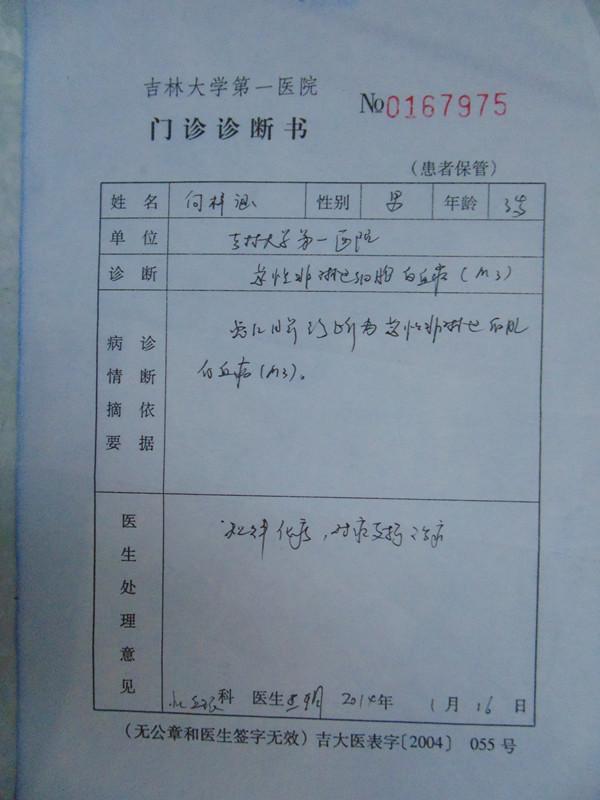 吉林大学第一医院
№0167975
门诊诊断书
(患者保管)
姓名 何梓涵 性别 男 年龄 3岁
单位 吉林大学第一医院
诊断 急性非淋巴细胞白血病(M3)
病情摘要 诊断依据
患儿目前诊断为急性非淋巴细胞
白血病(M3)。
医生处理意见
化疗,对症支持治疗
科 医生 2014年 1月16日
(无公章和医生签字无效) 吉大医表字[2004] 055号